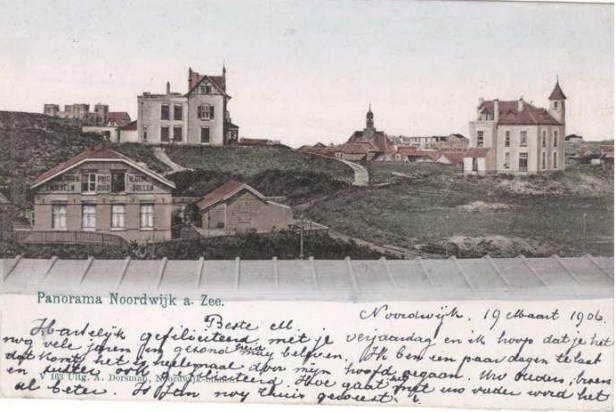 Panorama Noordwijk a. Zee.
Noordwijk, 19 Maart 1906.
Beste M
Hartelijk gefeliciteerd met je verjaardag en ik hoop dat je het
nog vele jaren in gezond mag beleven. Ik ben een paar dagen te laat
dat komt het is heelemaal door mijn hoofd gegaan. Uw ouders, broer
en zuster ook gefeliciteerd. Hoe gaat het met uw vader word het
V 163 Uitg. A. Dorsman, Noordwijk-binnen
al beter. nog thuis geweest